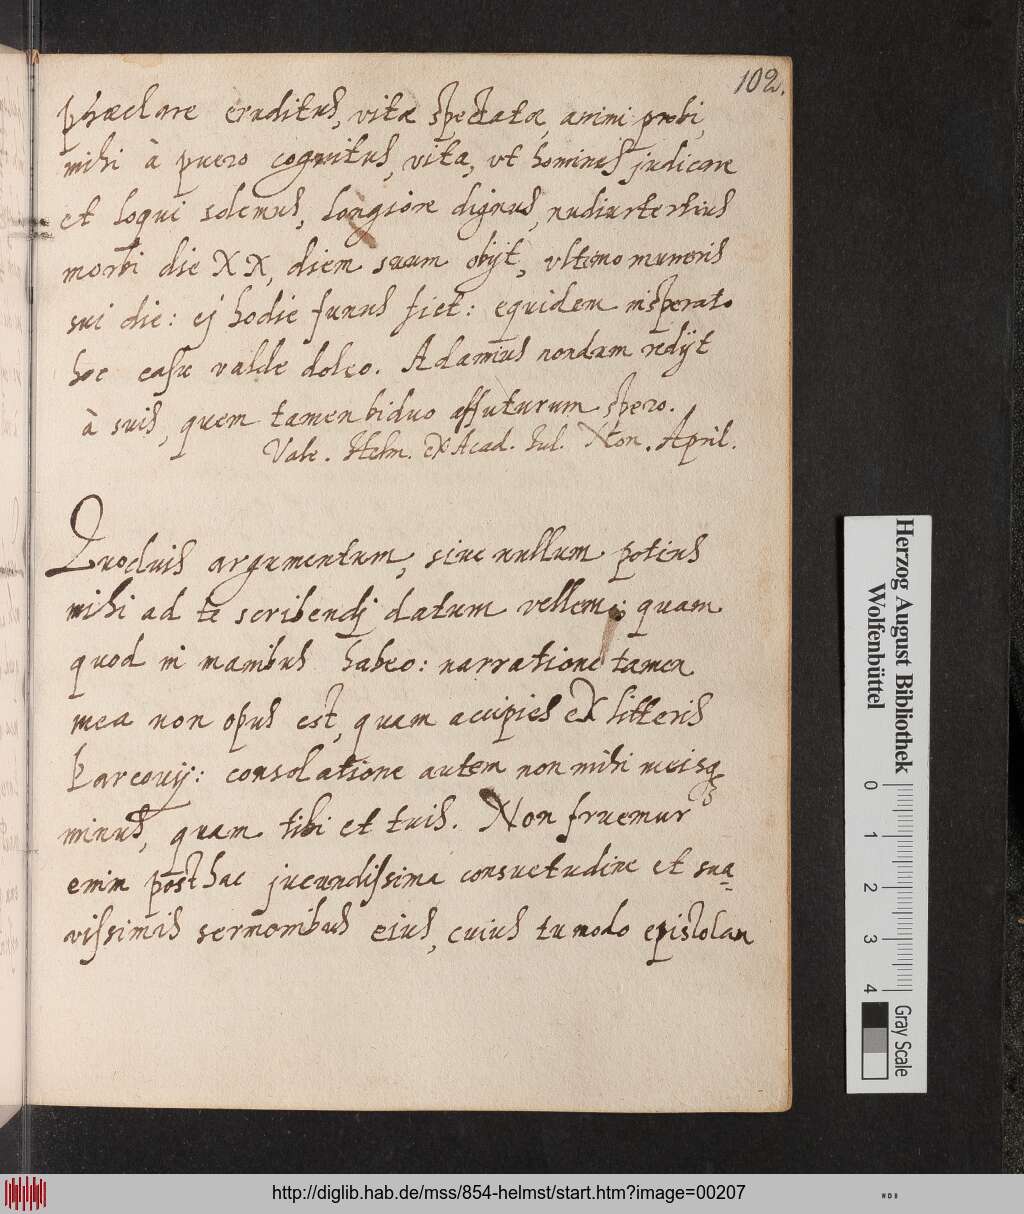 102.
præclare eruditus, vitæ spectatæ, animi probi,
mihi à puero cognitus, vita, ut homines judicare
et loqui solemus, longiore dignus, nudiustertius
morbi die XX, diem suum obijt, ultimo muneris
sui die: ej hodie funus fiet: equidem insperato
hoc casu valde doleo. Adamus nondum redijt
à suis, quem tamen biduo affuturum spero.
Vale. Helm. ex Acad. Jul. Non. April.
Quoduis argumentum, siue nullum potius
mihi ad te scribendj datum vellem: quam
quod in manibus habeo: narratione tamen
mea non opus est, quam accipies ex litteris
Barcouij: consolatione autem non mihi meisq3
minus, quam tibi et tuis. Non fruemur
enim posthac jucundissima consuetudine et sua-
vissimis sermonibus eius, cuius tu modo epistolam
Herzog August Bibliothek
Wolfenbüttel
0 1 2 3 4
Gray Scale
http://diglib.hab.de/mss/854-helmst/start.htm?image=00207
WDB